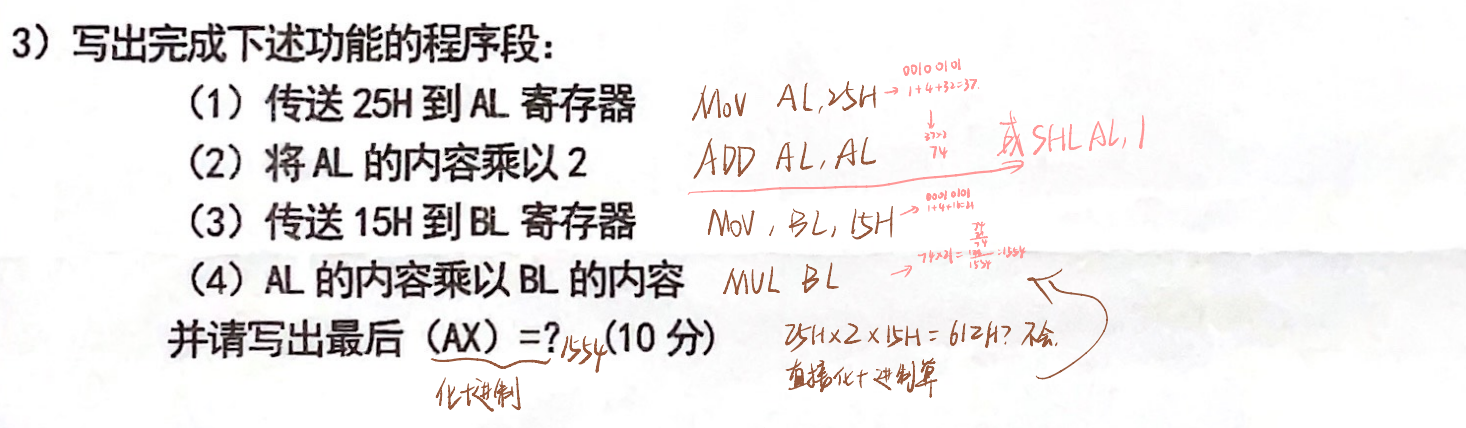 3）写出完成下述功能的程序段：
（1）传送 25H 到 AL 寄存器 MOV AL,25H → 0010 0101
1+4+32=37.
（2）将 AL 的内容乘以 2 ADD AL, AL 37×2
74 或 SHL AL,1
（3）传送 15H 到 BL 寄存器 MOV, BL, 15H → 0001 0101
1+4+16=21
（4）AL 的内容乘以 BL 的内容 MUL BL → 74×21= =1554
74
74
1554
并请写出最后（AX）=? 1554 (10 分) 25H×2×15H=612H? 不会.
化十进制 直接化十进制算